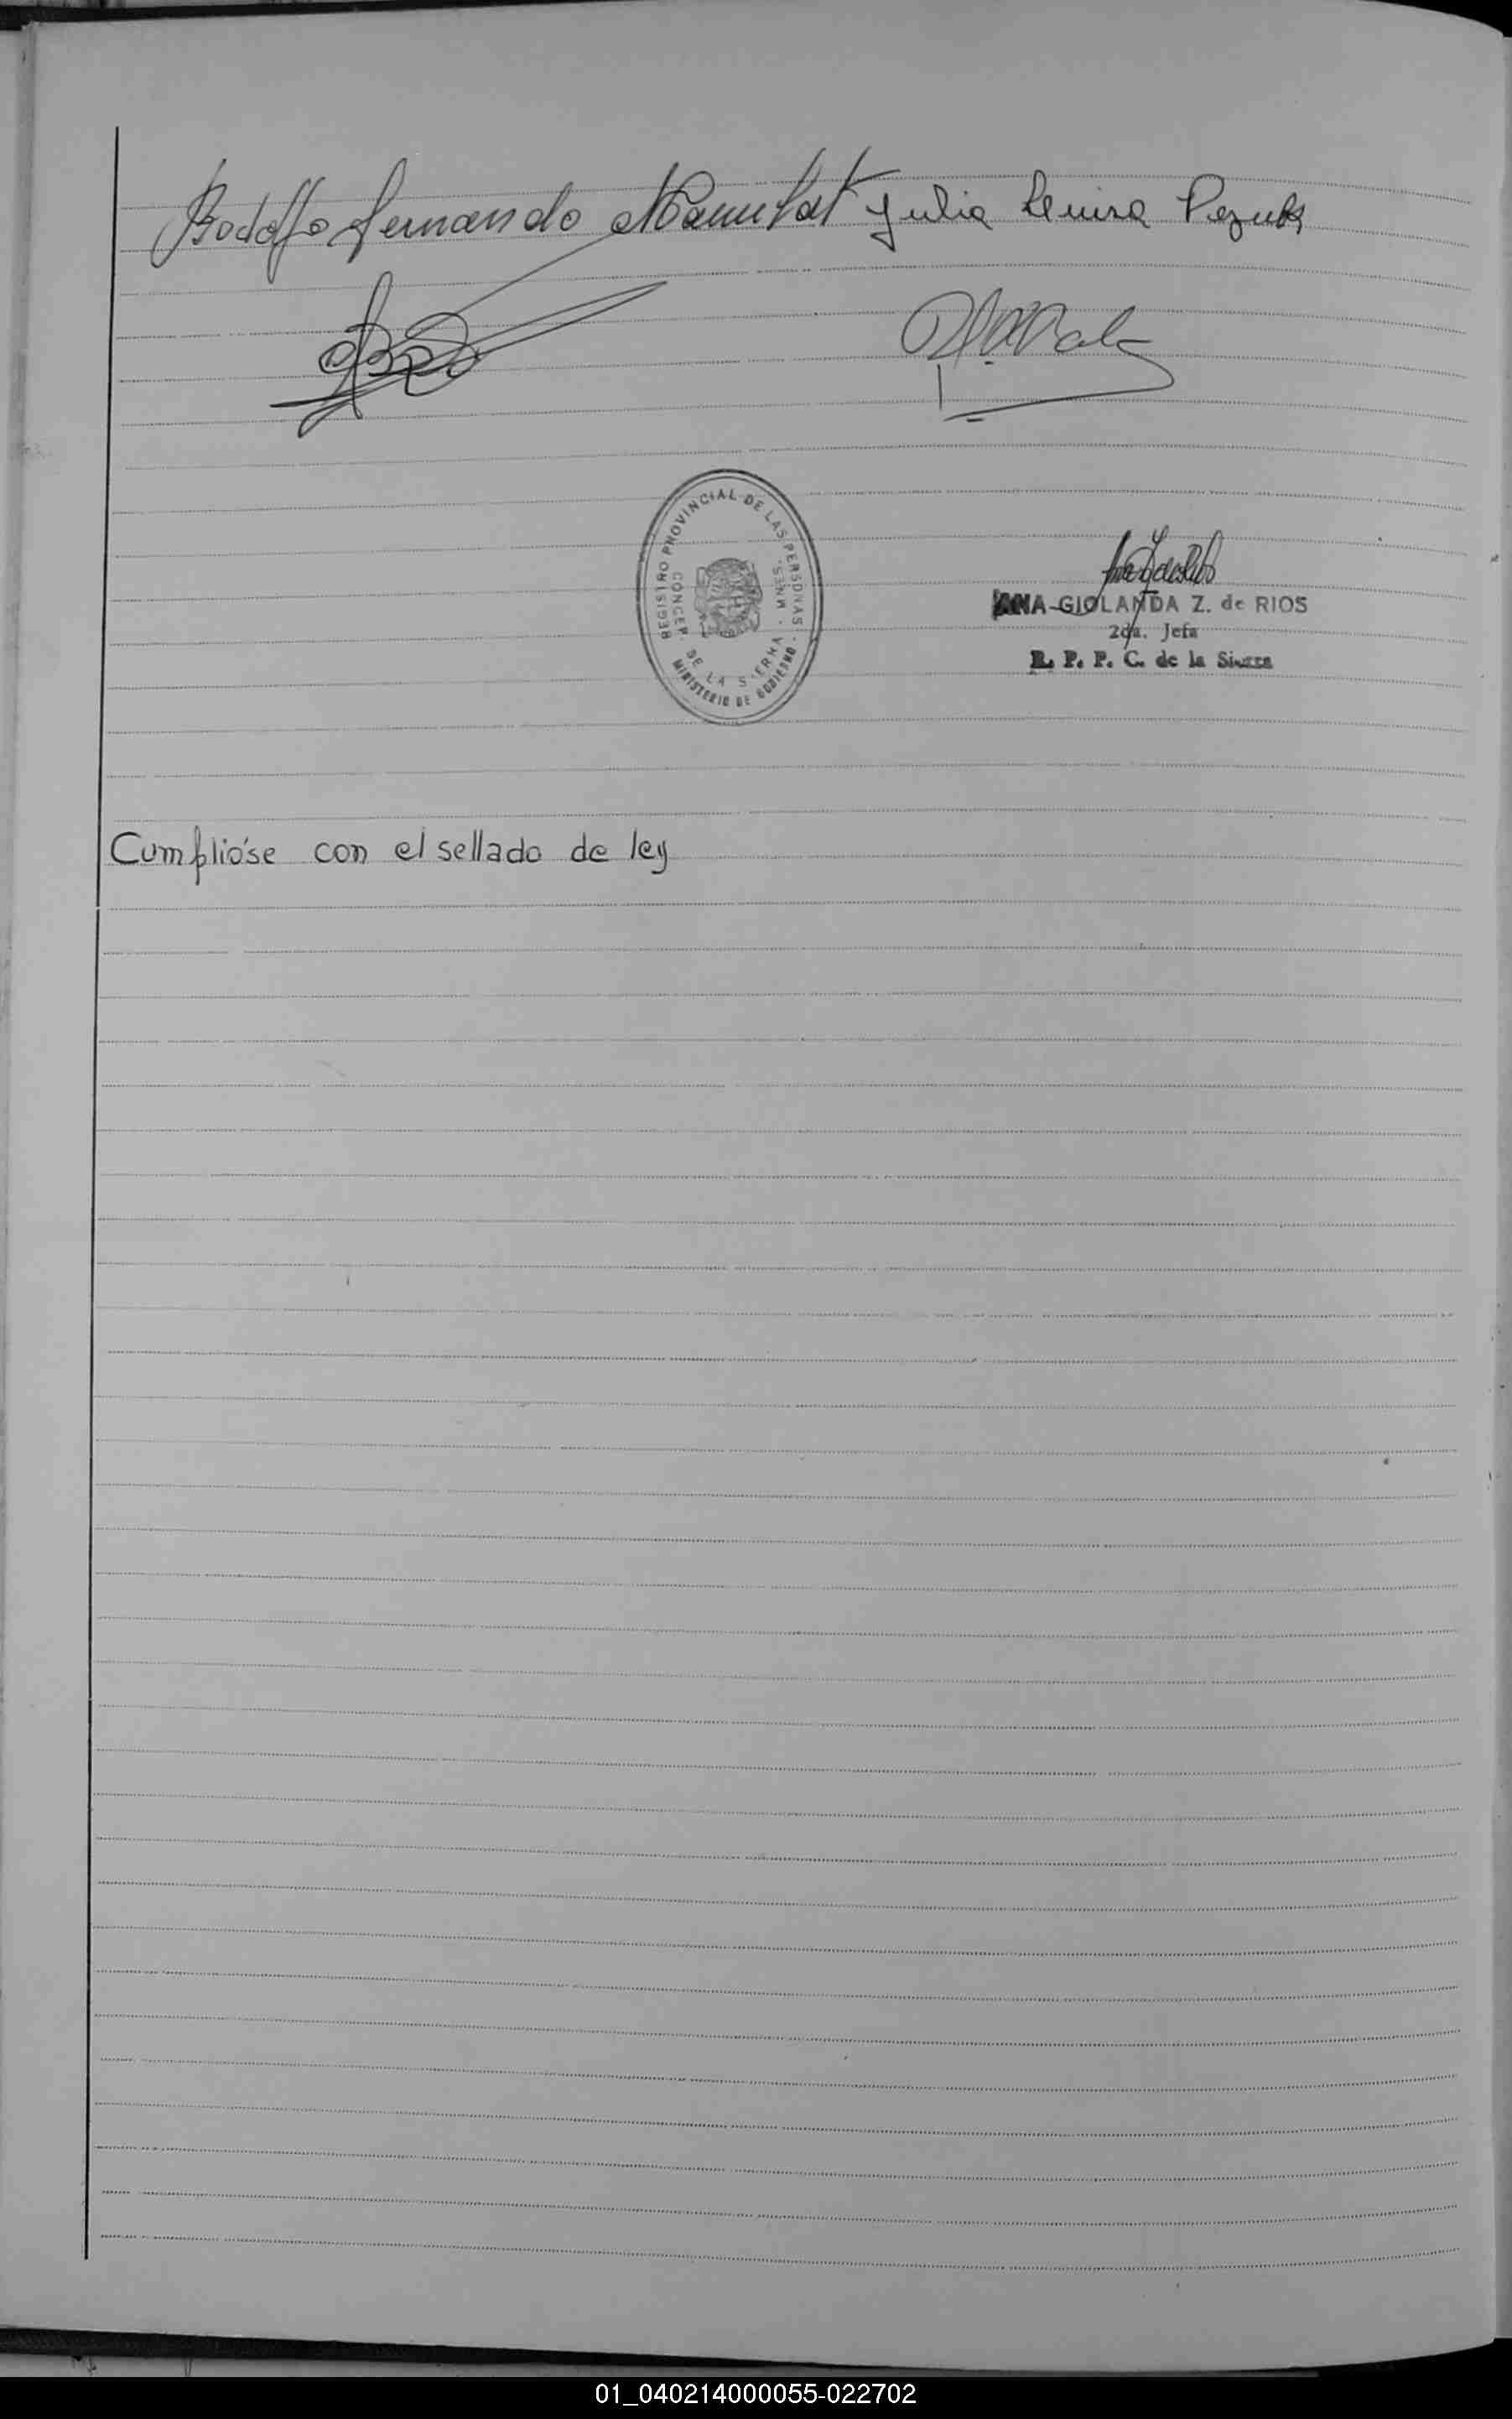 Rodolfo Fernando Julia
REGISTRO PROVINCIAL DE LAS PERSONAS - MINISTERIO DE GOBIERNO -
CONCEP. DE LA SIERRA - MNES.
ANA GIOLANDA Z. de RIOS
2da. Jefa
R. P. P. C. de la Sierra
Cumplióse con el sellado de ley
01_040214000055-022702